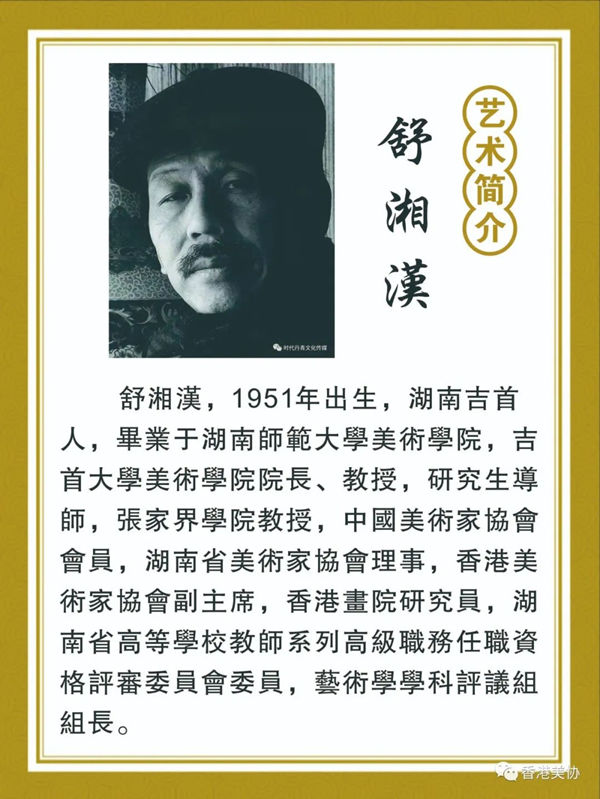 艺术简介
舒湘漢
时代丹青文化传媒
舒湘漢，1951年出生，湖南吉首
人，畢業于湖南師範大學美術學院，吉
首大學美術學院院長、教授，研究生導
師，張家界學院教授，中國美術家協會
會員，湖南省美術家協會理事，香港美
術家協會副主席，香港畫院研究員，湖
南省高等學校教師系列高級職務任職資
格評審委員會委員，藝術學學科評議組
組長。
香港美协